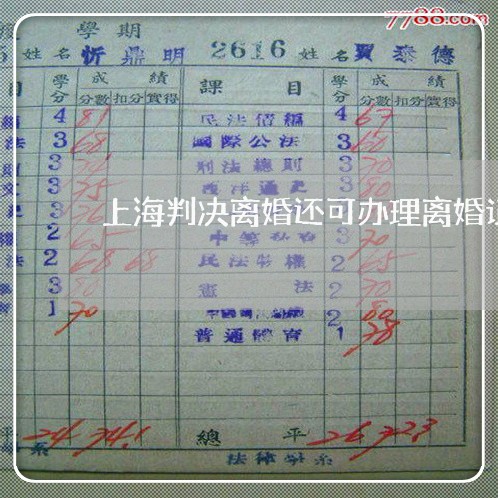 7788.com
學期
姓名忻鼎明 2616 姓名賈泰德
目 學分 成績 課目 學分 成績
分數 扣分 實得 分數 扣分 實得
4 81 民法債編 4 67
法 3 68 國際公法 3 60
3 刑法總則 3 70
文 3 75 西洋通史 3 80
上海判决离婚还可办理离婚
2 65 3 70
法 2 68 68 民法物權 2 65
3 80 憲法 2 70
1 70 2 80
普通體育 1 78
平 24 74.1 總平 26 72.3
系 法律學系